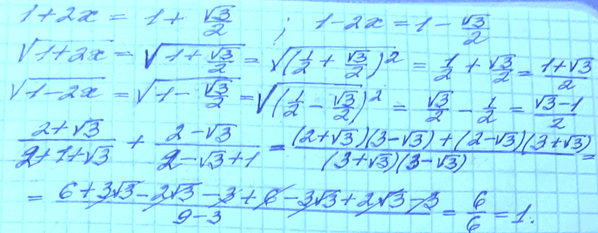 1+2x = 1 + √3/2 ; 1-2x = 1 - √3/2
√(1+2x) = √(1+√3/2) = √(1/2 + √3/2)² = 1/2 + √3/2 = (1+√3)/2
√(1-2x) = √(1-√3/2) = √(1/2 - √3/2)² = √3/2 - 1/2 = (√3-1)/2
(2+√3)/(2+1+√3) + (2-√3)/(2-√3+1) = ((2+√3)(3-√3)+(2-√3)(3+√3))/((3+√3)(3-√3)) =
= (6+3√3-2√3-3+6-3√3+2√3-3)/(9-3) = 6/6 = 1.